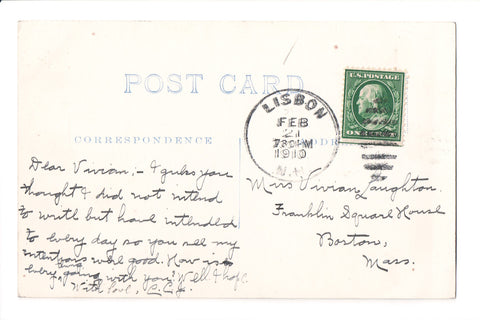 POST CARD
CORRESPONDENCE
Dear Vivian, - I guess you
thought I did not intend
to write but have intended
to every day so you see my
intentions were good. How is
every thing going with you? Well I hope
With love,
LISBON
FEB
21
1910
N.H.
U.S. POSTAGE
ONE
Miss Vivian Laughton.
Franklin Square House
Boston,
Mass.